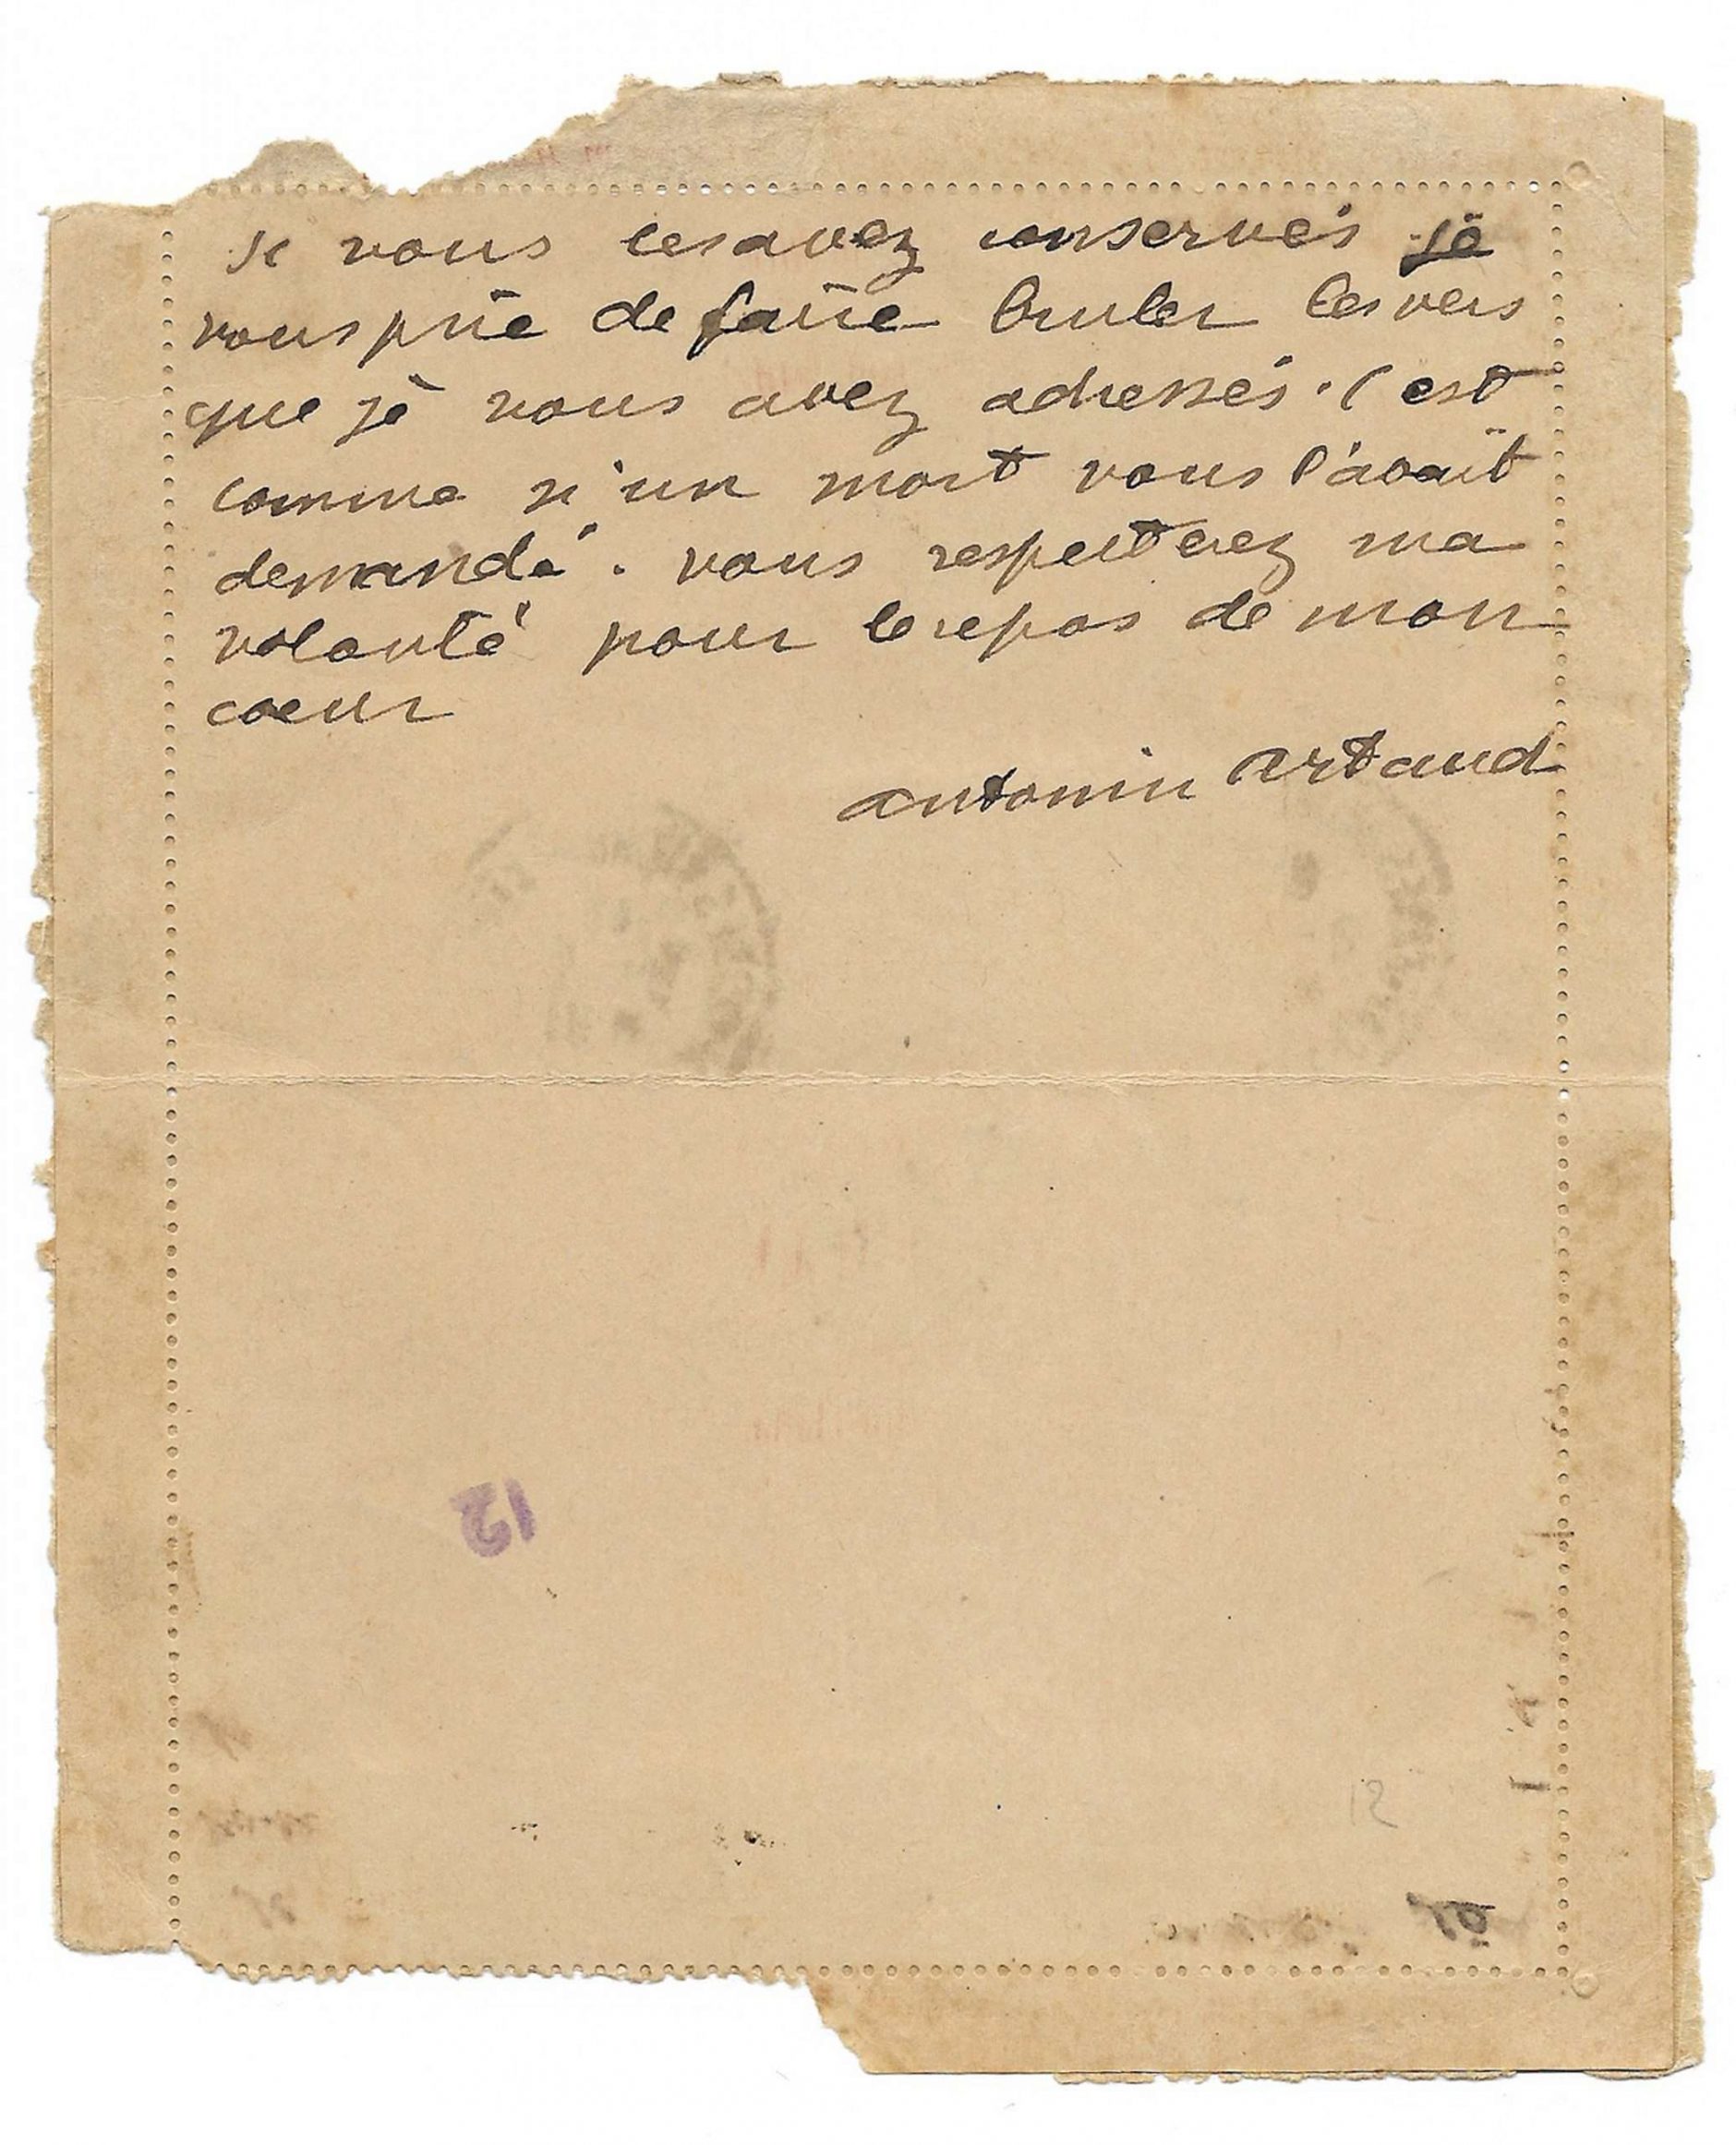 si vous les avez conservés je
vous prie de faire bruler les vers
que je vous avez adressés. C'est
comme si un mort vous l'avait
demandé. vous respecterez ma
volonté pour le repos de mon
coeur
antonin artaud
12
12